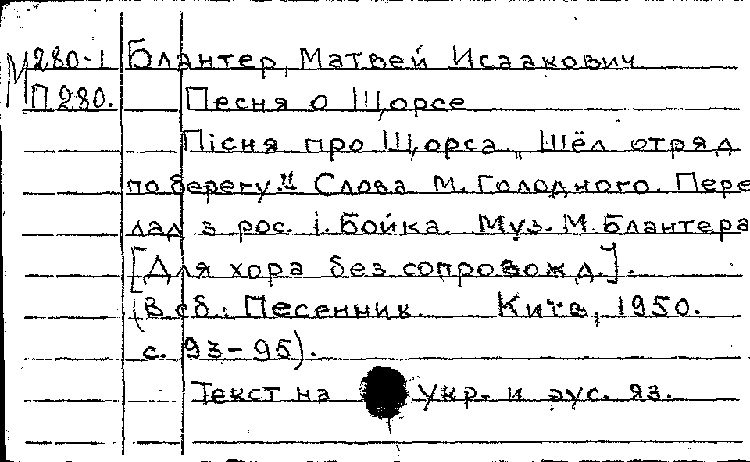 М280-1 Блантер, Матвей Исаакович
П280. Песня о Щорсе
Пісня про Щорса „Шёл отряд
по берегу." Слова М. Голодного. Пере
лад з рос. І. Бойка. Муз. М. Блантера
[Для хора без сопровожд.].
(В сб.: Песенник. Київ, 1950.
с. 93-95).
Текст на укр. и рус. яз.